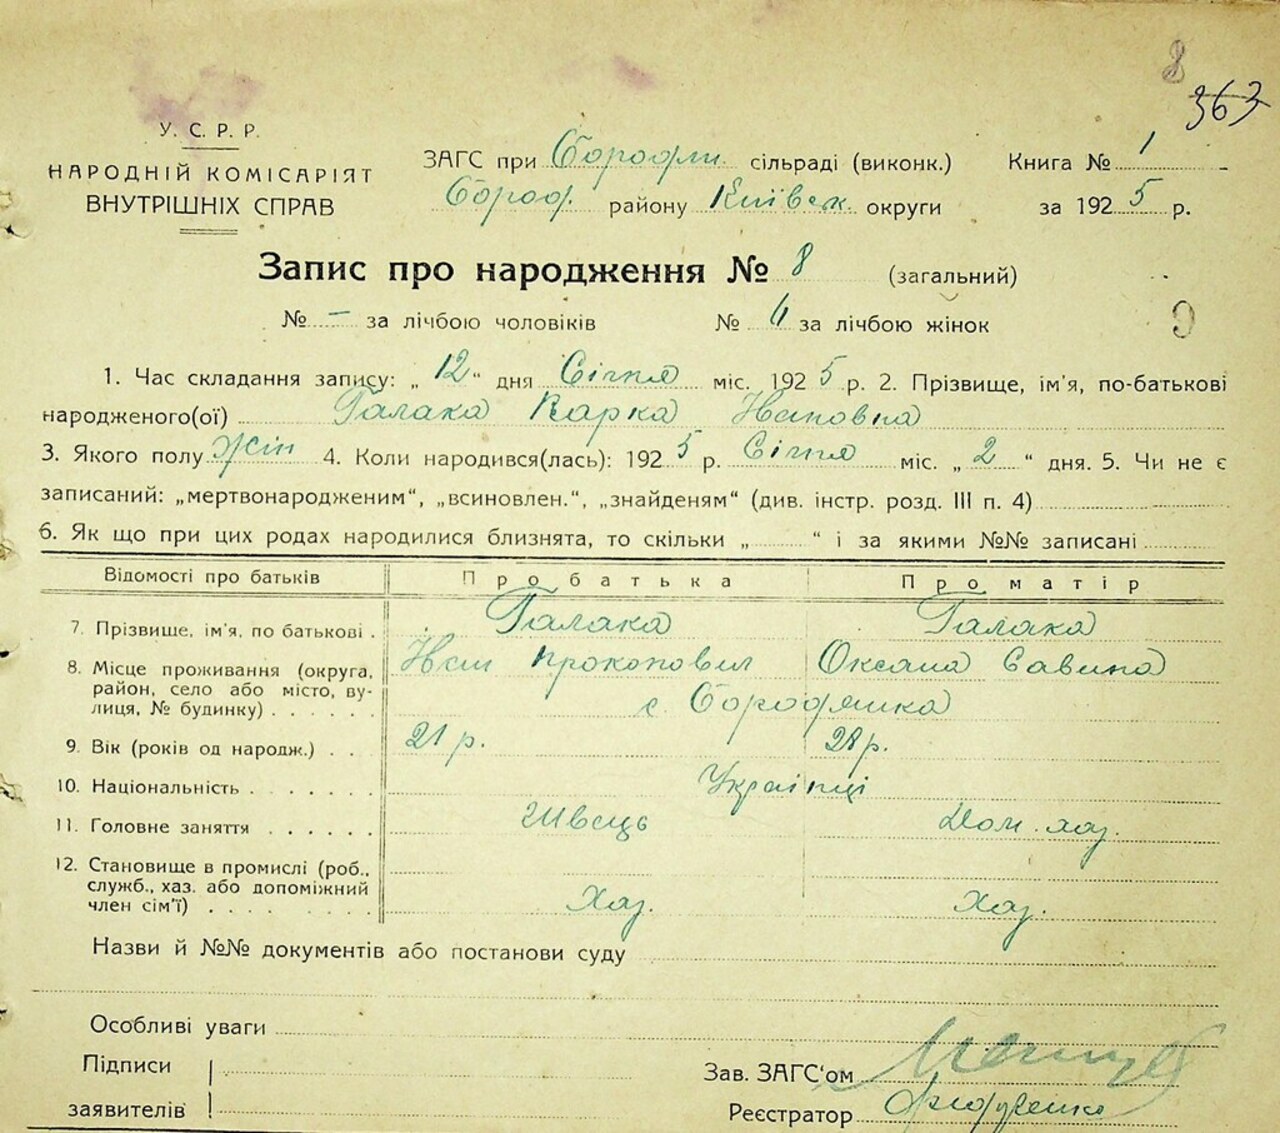 8
363
У. С. Р. Р.
НАРОДНІЙ КОМІСАРІЯТ
ВНУТРІШНІХ СПРАВ
ЗАГС при Бородян. сільраді (виконк.) Книга № 1
Бород. району Київськ. округи за 1925 р.
Запис про народження № 8 (загальний)
№ — за лічбою чоловіків № 4 за лічбою жінок
9
1. Час складання запису: „12“ дня Січня міс. 1925 р. 2. Прізвище, ім'я, по-батькові
народженого(ої) Галака Варка
3. Якого полу жін 4. Коли народився(лась): 1925 р. Січня міс. „2“ дня. 5. Чи не є
записаний: „мертвонародженим“, „всиновлен.“, „знайденям“ (див. інстр. розд. III п. 4)
6. Як що при цих родах народилися близнята, то скільки „ “ і за якими №№ записані
Відомості про батьків Про батька Про матір
7. Прізвище, ім'я, по батькові . Галака Галака
8. Місце проживання (округа, Прокопович Оксана Савина
район, село або місто, ву-
лиця, № будинку) . . . . . . с. Бородянка
9. Вік (років од народж.) . . 21 р. 21 р.
10. Національність . . . . . . . Українці
11. Головне заняття . . . . . . Швець Дом. хаз.
12. Становище в промислі (роб.,
служб., хаз. або допоміжний
член сім'ї) . . . . . . . . Хаз. Хаз.
Назви й №№ документів або постанови суду
Особливі уваги
Підписи
заявителів
Зав. ЗАГС'ом
Реєстратор